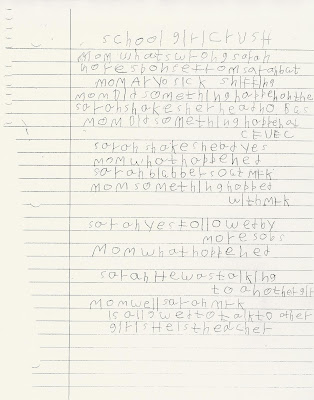 school girl crush
mom whats wrong sarah
no response from sarah but
mom Ar yo sick sniffing
mom Did something happen on the
sarah shakes her head no
mom Did something happen at
sarah shakes head yes
mom what happened
sarah blabbers out mrk
mom something happed
with mrk
sarah yes followed by
more sobs
Mom what happened
sarah He was talking
to another girl
Mom well sarah mrk
is allowed to talk to other
girls He is the